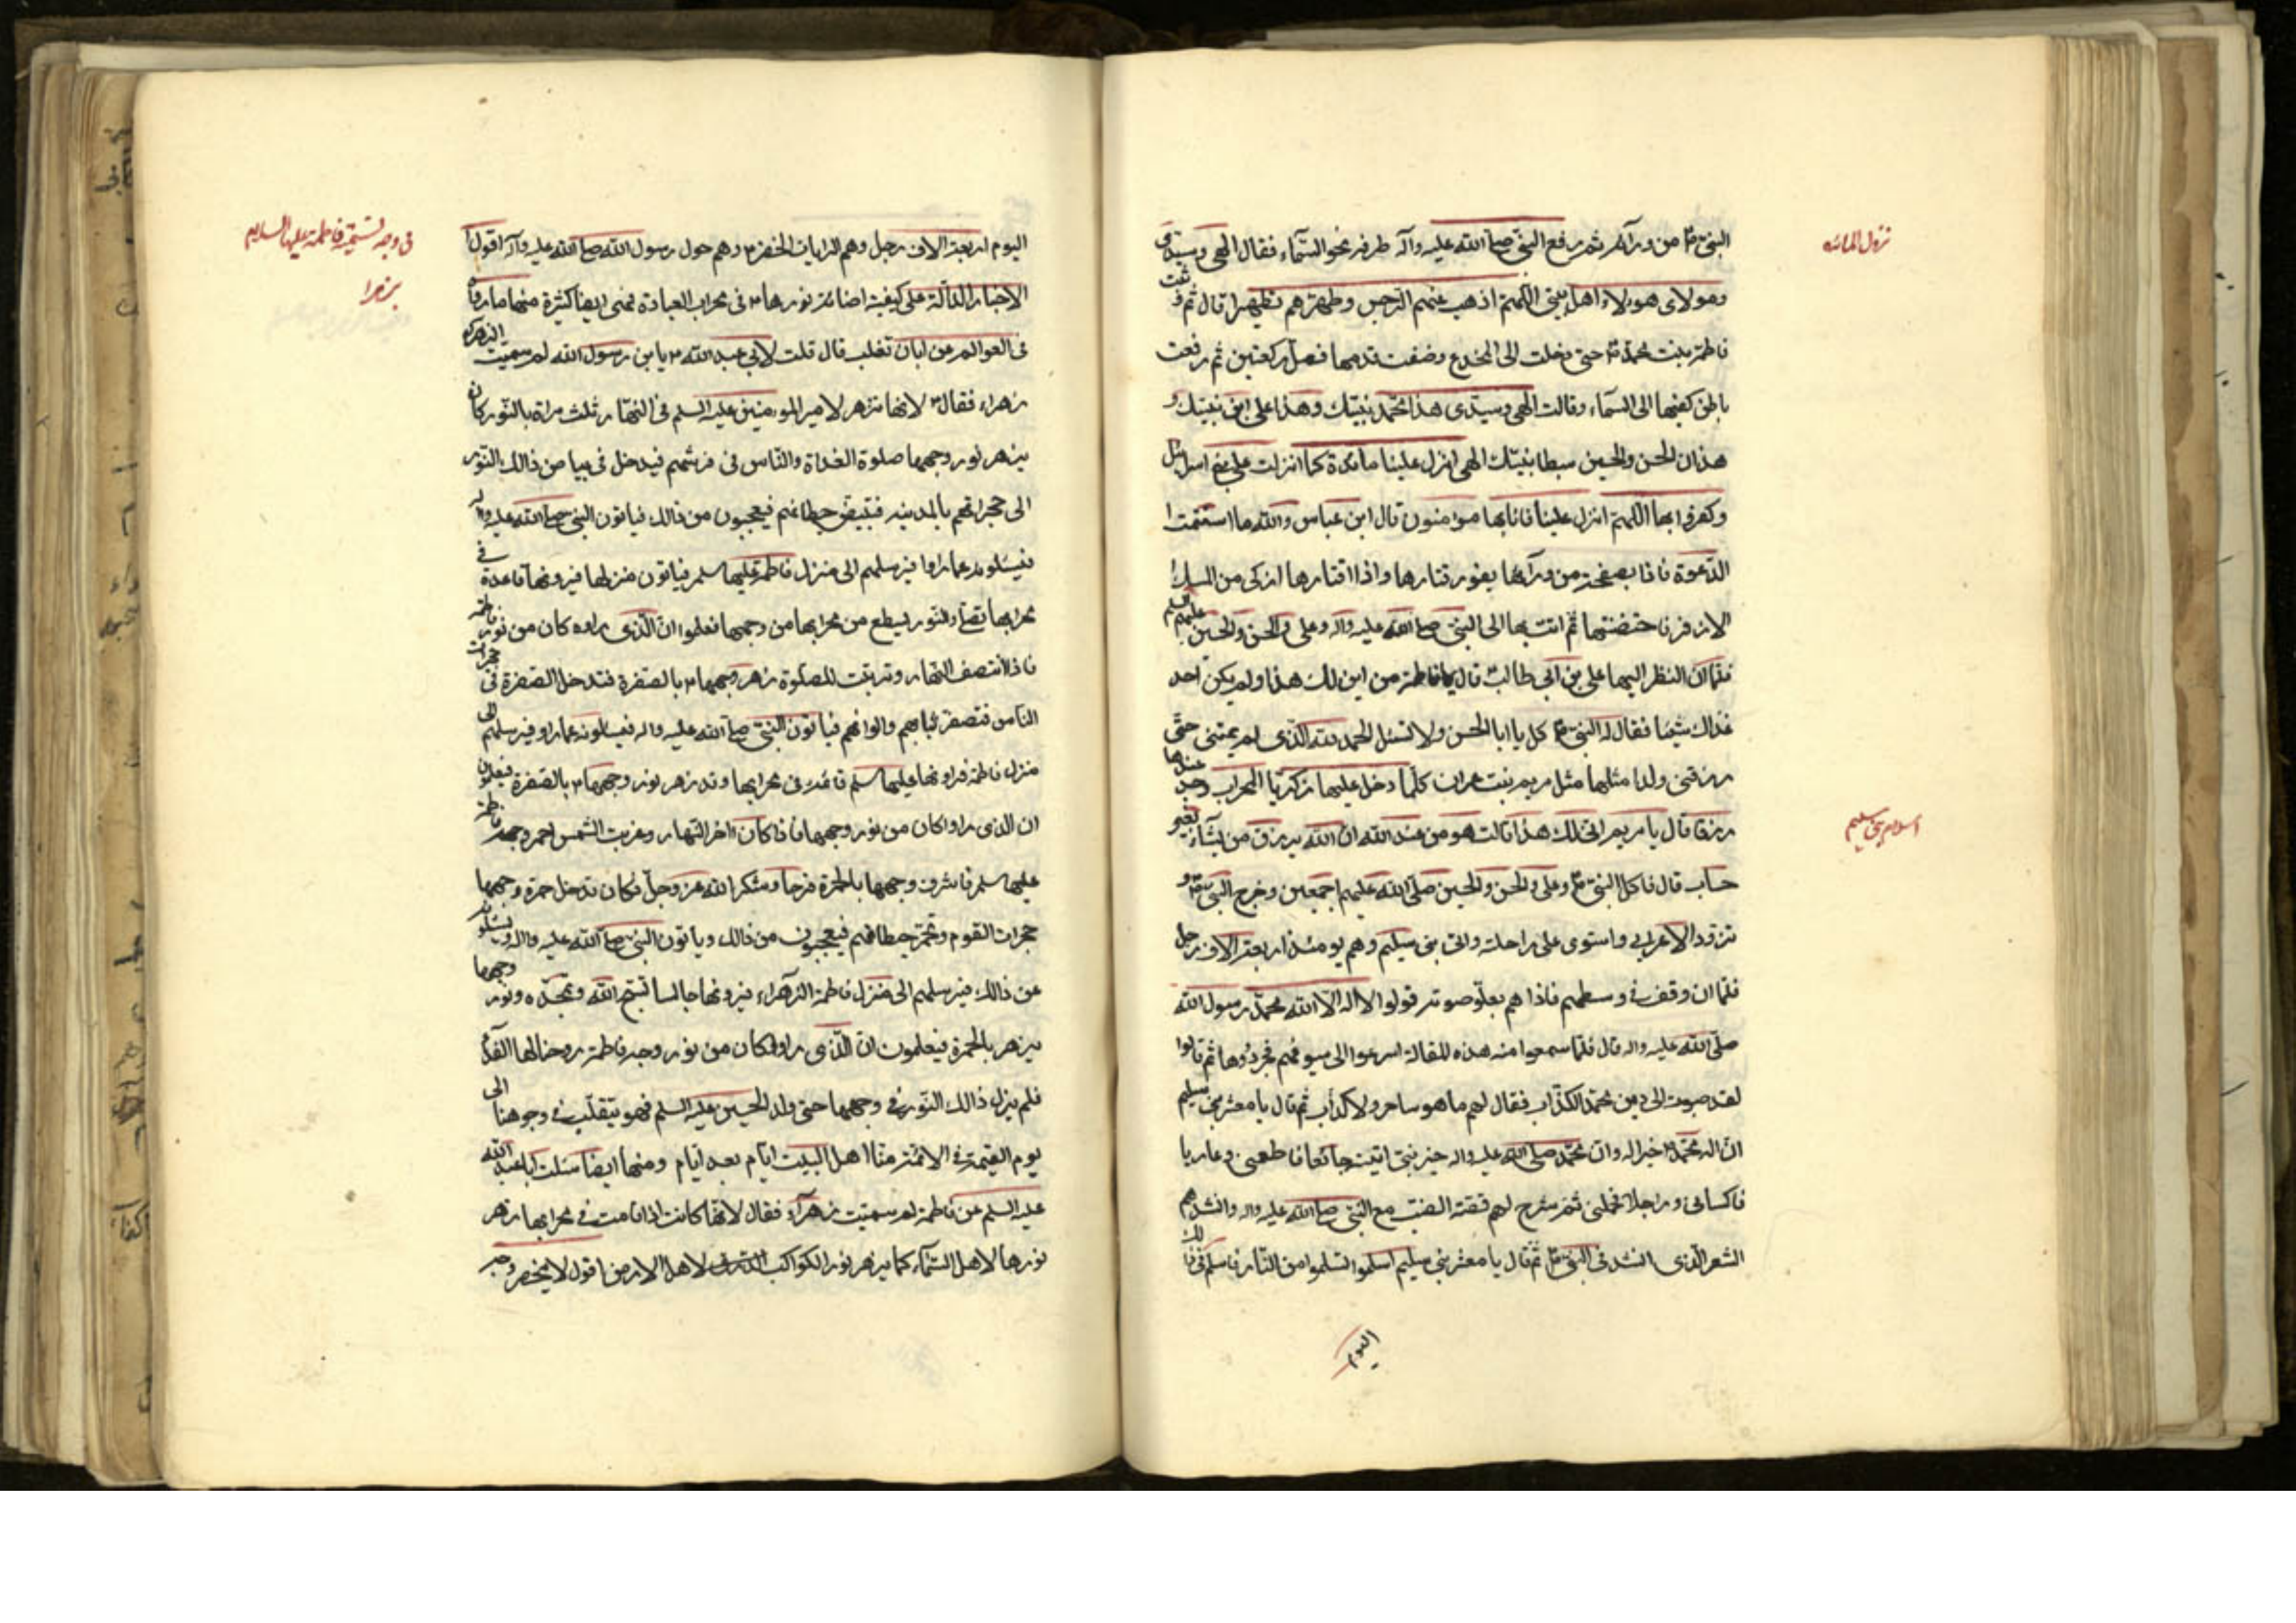 نزول المائده
النبی ص من ورآئهم ثم رفع النبی صلی الله علیه وآله طرفه نحو السمآء فقال الهی وسیدی
وهولای هولاء اهل بیتی اللهم اذهب عنهم الرجس وطهرهم تطهیرا قال ثم وثبت
فاطمة بنت محمد ص حتی دخلت الی المخدع وصفت قدمیها فصلت رکعتین ثم رفعت
باطن کفیها الی السمآء وقالت الهی وسیدی هذا محمد نبیک وهذا علی ابن نبیک و
هذان الحسن والحسین سبطا نبیک الهی انزل علینا مائدة کما انزلت علی بنی اسرائیل
وکفروا بها اللهم انزل علینا فانا بها مؤمنون قال ابن عباس والله ما استتمت
الدعوة فاذا بصفحة من ورآئها یفور قتارها واذا قتارها ازکی من المسک
الاذفر فاحتضنتها ثم اتت بها الی النبی صلی الله علیه واله وعلی والحسن والحسین علیهم السلم
فلما ان النظر الیها علی بن ابی طالب قال یا فاطمة من این لک هذا ولم یکن احد
عندک شیئا فقال له النبی ص کل یا ابا الحسن ولا تسئل الحمد لله الذی لم یمتنی حتی
رزقنی ولدا مثلها مثل مریم بنت عمران کلما دخل علیها زکریا المحراب وجد عندها
رزقا قال یا مریم انی لک هذا قالت هو من عند الله ان الله یرزق من یشآء بغیر
اسلام بنی سلیم
حساب قال فاکل النبی ص وعلی والحسن والحسین صلی الله علیهم اجمعین وخرج النبی ص و
تزود الاعرابی واستوی علی راحلته واتی بنی سلیم وهم یومئذ اربعة الاف رجل
فلما ان وقف فی وسطهم فاذا هم بعلو صوته قولوا لا اله الا الله محمد رسول الله
صلی الله علیه واله قال فلما سمعوا منه هذه المقالة اسرعوا الی سیوفهم فجردوها ثم قالوا
لقد صبوت الی دین محمد الکذاب فقال لهم ما هو ساحر ولا کذاب ثم قال یا معشر بنی سلیم
ان اله محمد خیر اله وان محمد صلی الله علیه واله خیر نبی اتیته جائعا فاطعمنی وعاریا
فاکسانی وراجلا فحملنی ثم شرح لهم قصة الضب مع النبی صلی الله علیه واله وانشدهم
الشعر الذی انشد فی النبی ص ثم قال یا معشر بنی سلیم اسلموا تسلموا من النار فاسلم فی ذلک
الیوم
فی وجه تسمیة فاطمة علیها السلام
بزهرا
الیوم اربعة الاف رجل وهم الرایات الخضر وهم حول رسول الله صلی الله علیه وآله اقول
الاخبار الدآلة علی کیفیة اضائة نورها فی محراب العبادة فهی ایضا کثیرة منها ما رواه
فی العوالم عن ابان تغلب قال قلت لابی عبد الله یابن رسول الله لم سمیت الزهراء
زهراء فقال لانها تزهر لامیر المومنین علیه السلم فی النهار ثلث مراة بالنور کان
یزهر نور وجهها صلوة الغداة والناس فی فرشهم فیدخل فی بیا من ذالک النور
الی حجراتهم بالمدینه فتبیض حیطانهم فیعجبون من ذالک فیاتون النبی صلی الله علیه واله
فیسئلونه عما راوا فیرسلهم الی منزل فاطمة علیها سلم فیاتون منزلها فیرونها قاعدة فی
محرابها تصلی والنور یسطع من محرابها من وجهها فعلموا ان الذی راوه کان من نور فاطمة
فاذا انتصف النهار وترتبت للصلوة زهر وجهها بالصفرة فتدخل الصفرة فی حجرات
الناس فتصفر ثیابهم والوانهم فیاتون النبی صلی الله علیه واله فیسئلونه عما راو فیرسلهم الی
منزل فاطمة فیرونها علیها سلم قائمة فی محرابها وقد زهر نور وجهها بالصفرة فیعلمون
ان الذی راوا کان من نور وجهها فاذا کان اخر النهار وغربت الشمس احمر وجه فاطمة
علیها سلم فاشرق وجهها بالحمرة فرحا وشکرا لله عز وجل فکان تدخل حمرة وجهها
حجرات القوم وتحمر حیطانهم فیعجبون من ذالک ویاتون النبی صلی الله علیه واله ویسئلونه
عن ذالک فیرسلهم الی منزل فاطمة الزهراء فیرونها جالسا تسبح الله وتمجده ونور وجهها
یزهر بالحمرة فیعلمون ان الذی راوا کان من نور وجه فاطمة روحنا لها الفداه
فلم یزل ذالک النور فی وجهها حتی ولد الحسین علیه السلم فهو یتقلب فی وجوهنا الی
یوم القیمة فی الائمة منا اهل البیت ایام بعد ایام ومنها ایضا سئلت ابا عبد الله
علیه السلم عن فاطمة لم سمیت زهرآء فقال لانها کانت اذا قامت فی محرابها زهر
نورها لاهل السمآء کما یزهر نور الکواکب لاهل الارض اقول لا یخفی وجه